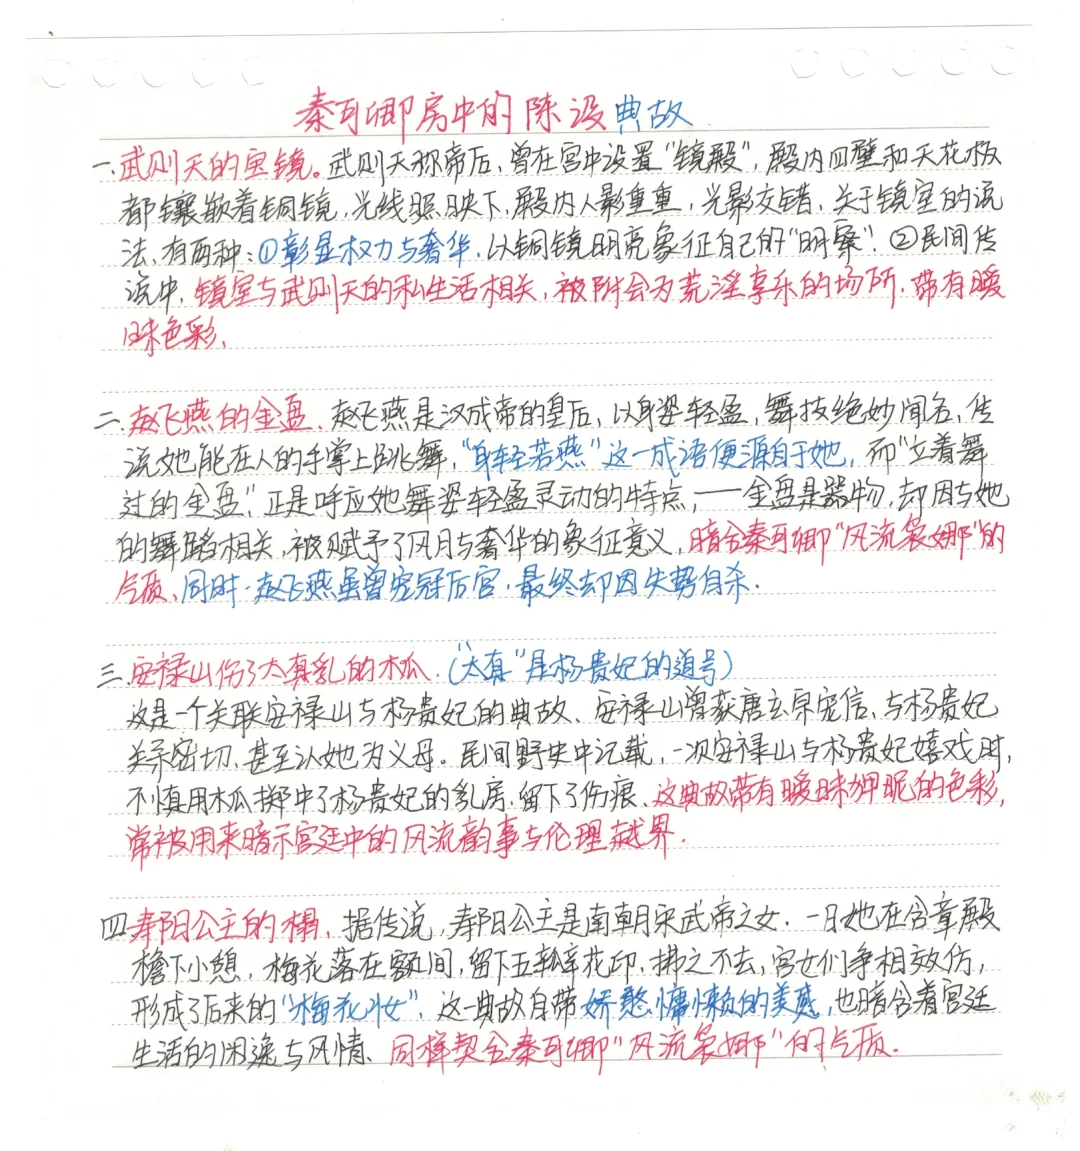 秦可卿房中的陈设典故
一.武则天的宝镜。武则天称帝后,曾在宫中设置"镜殿",殿内四壁和天花板
都镶嵌着铜镜,光线照映下,殿内人影重重,光影交错,关于镜室的说
法,有两种:①彰显权力与奢华,以铜镜明亮象征自己的"明察".②民间传
说中,镜室与武则天的私生活相关,被附会为荒淫享乐的场所.带有暧
昧色彩,
二.赵飞燕的金盘.赵飞燕是汉成帝的皇后,以身姿轻盈,舞技绝妙闻名,传
说她能在人的手掌上跳舞,"身轻若燕"这一成语便源自于她,而"立着舞
过的金盘",正是呼应她舞姿轻盈灵动的特点,——金盘是器物,却因与她
的舞蹈相关,被赋予了风月与奢华的象征意义,暗合秦可卿"风流袅娜"的
气质、同时.赵飞燕虽曾宠冠后宫.最终却因失势自杀.
三.安禄山伤了太真乳的木瓜.("太真"是杨贵妃的道号)
这是一个关联安禄山与杨贵妃的典故、安禄山曾获唐玄宗宠信、与杨贵妃
关系密切,甚至认她为义母。民间野史中记载,一次安禄山与杨贵妃嬉戏时,
不慎用木瓜掷中了杨贵妃的乳房.留下了伤痕.这典故带有暧昧狎昵的色彩,
常被用来暗示宫廷中的风流韵事与伦理越界.
四.寿阳公主的榻,据传说,寿阳公主是南朝宋武帝之女.一日她在含章殿
檐下小憩,梅花落在额间,留下五瓣花印,拂之不去,宫女们争相效仿,
形成了后来的"梅花妆".这一典故自带娇憨慵懒的美感,也暗含着宫廷
生活的闲逸与风情、同样契合秦可卿"风流袅娜"的气质.